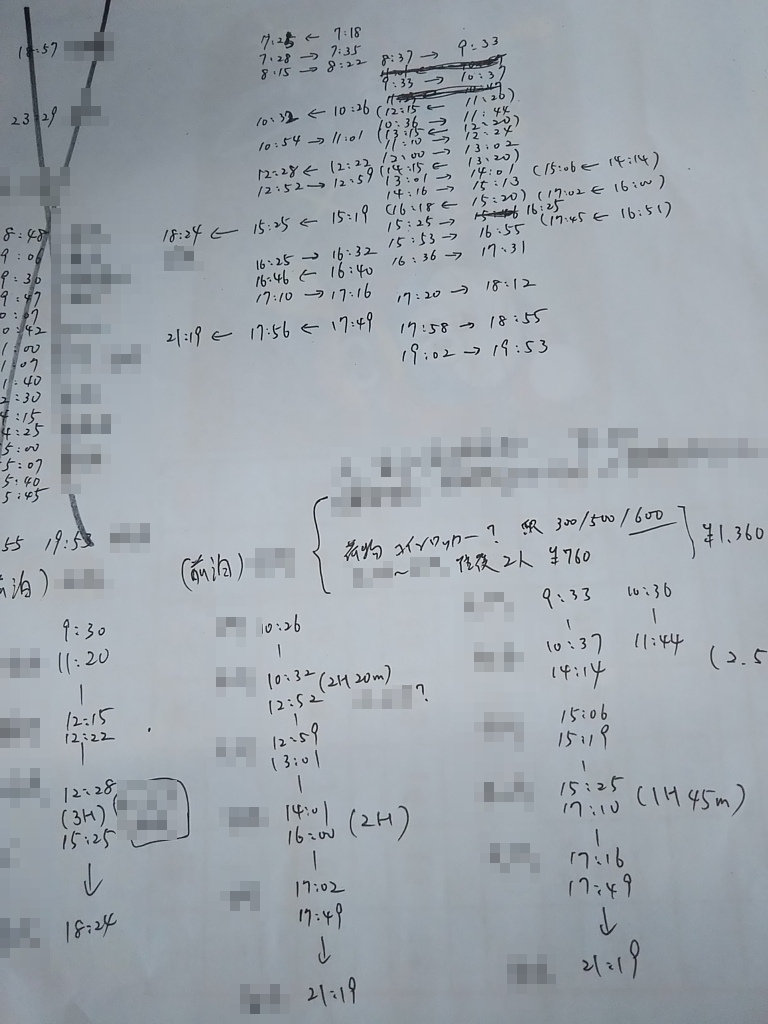 18:57
23:29
7:25 ← 7:18
7:28 → 7:35
8:15 → 8:22
8:37 → 9:33
9:33 → 10:37
10:32 ← 10:26
(12:15 ← 11:20)
10:36 → 11:44
10:54 → 11:01
(13:15 ← 12:20)
11:10 → 12:24
12:28 ← 12:22
12:00 → 13:02
12:52 → 12:59
(14:15 ← 13:20)
13:01 → 14:01
(15:06 ← 14:14)
14:16 → 15:13
18:24 ← 15:25 ← 15:19
(16:18 ← 15:20)
(17:02 ← 16:00)
15:25 → 16:25
(17:45 ← 16:51)
15:53 → 16:55
16:25 → 16:32
16:36 → 17:31
16:46 ← 16:40
17:10 → 17:16
17:20 → 18:12
21:19 ← 17:56 ← 17:49
17:58 → 18:55
19:02 → 19:53
8:48
9:06
9:30
9:47
0:07
0:42
1:00
1:07
1:40
2:30
4:15
4:25
5:00
5:07
5:40
5:45
55 19:53
前泊)
9:30
11:20
12:15
12:22
12:28
(3H)
15:25
↓
18:24
(前泊)
荷物 コインロッカー? 駅 300/500/600
~ 往復 2人 ¥760
¥1,360
10:26
10:32 (2H 20m)
12:52 ?
12:59
13:01
14:01
16:00 (2H)
17:02
17:49
↓
21:19
9:33 10:36
10:37 11:44
14:14 (2.5
15:06
15:19
15:25
17:10 (1H 45m)
17:16
17:49
↓
21:19